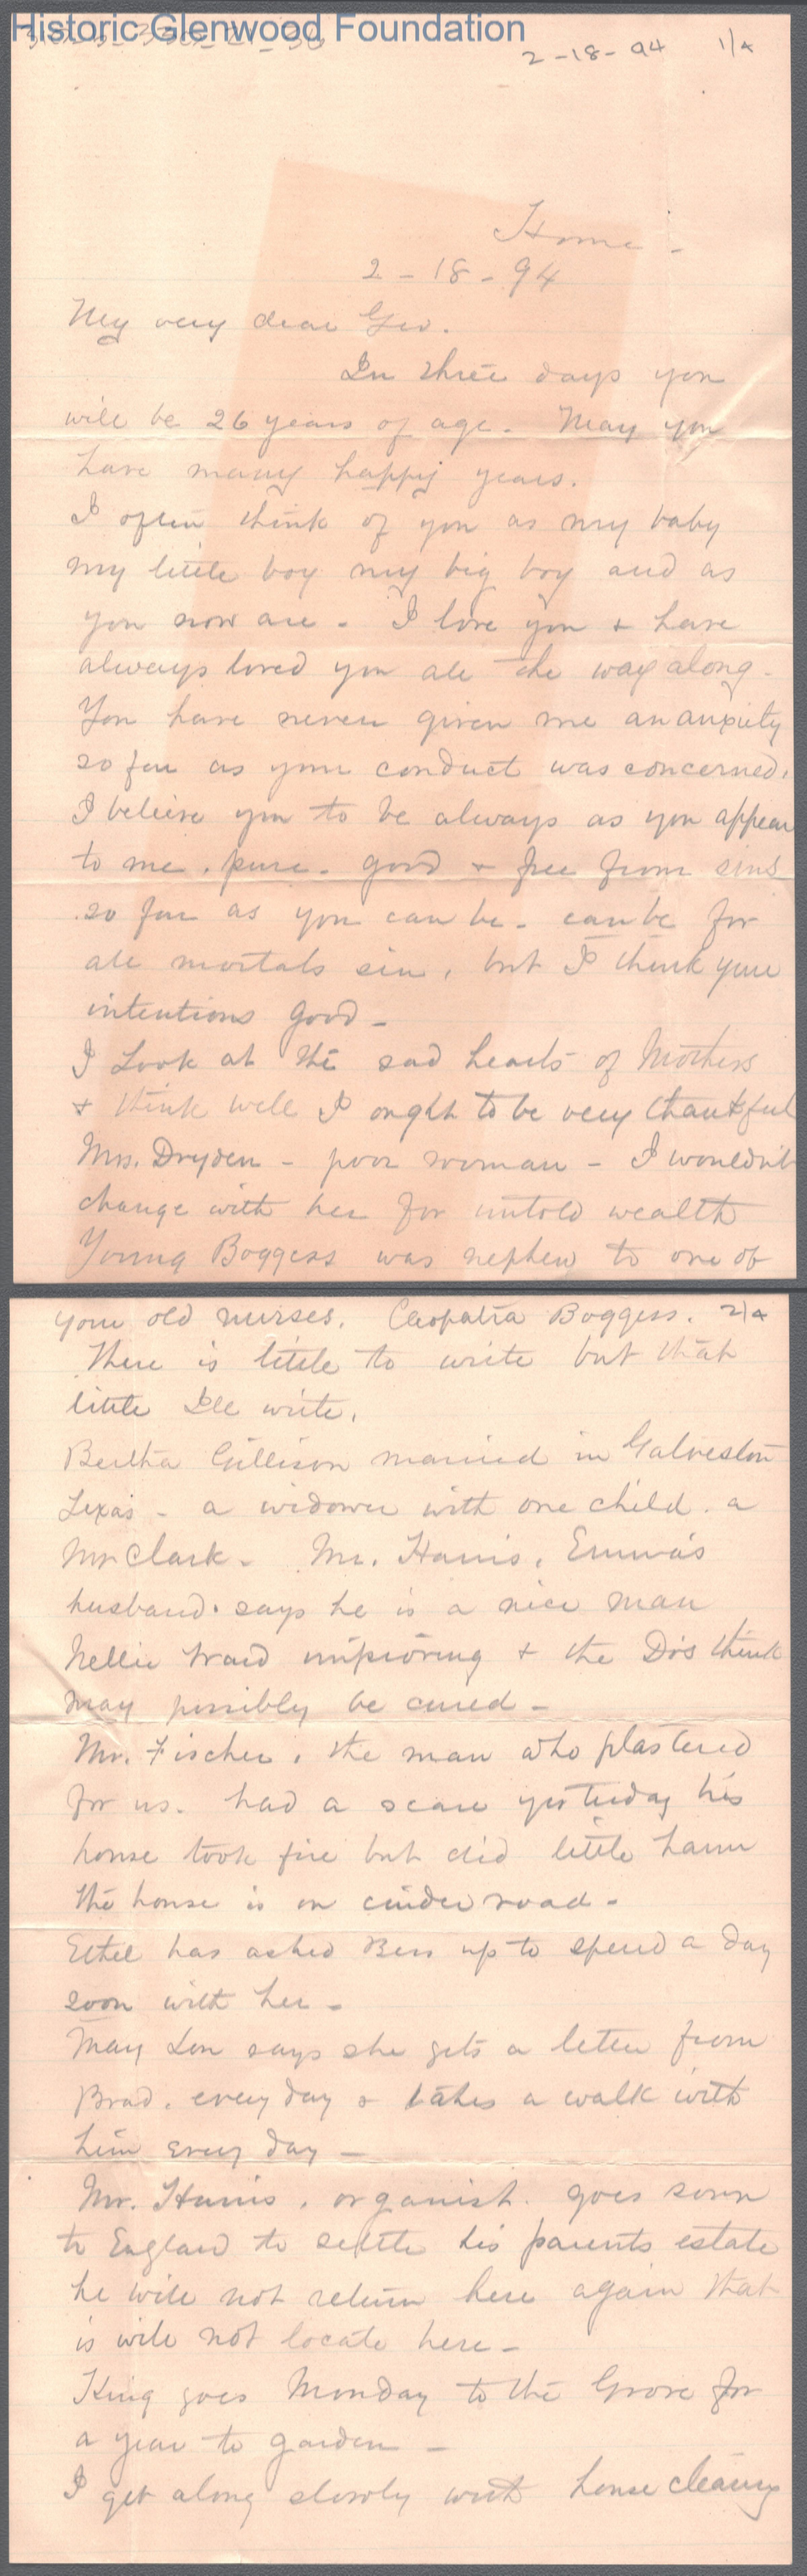 Historic Glenwood Foundation
2-18-94 1/4
Home -
2 - 18 - 94
My very dear Geo.
In three days you
will be 26 years of age. May you
have many happy years.
I often think of you as my baby
my little boy my big boy and as
you now are - I love you + have
always loved you all the way along -
You have never given me an anxiety
so far as your conduct was concerned.
I believe you to be always as you appear
to me, pure - good + free from sins
so far as you can be - can be for
all mortals sin, but I think your
intentions good -
I look at the sad hearts of Mothers
+ think well I ought to be very thankful
Mrs. Dryden - poor woman - I wouldn't
change with her for untold wealth
Young Boggess was nephew to one of
your old nurses. Cleopatra Boggess. 2/4
There is little to write but that
little Ill write.
Bertha Gillison married in Galveston
Texas - a widower with one child. a
Mr Clark - Mr. Harris, Emma's
husband. says he is a nice man
Nellie Ward improving + the Drs think
may possibly be cured -
Mr. Fischer, the man who plastered
for us. had a scare yesterday his
house took fire but did little harm
the house is on cinder road -
Ethel has asked Bess up to spend a day
soon with her -
May Lou says she gets a letter from
Brad. every day + takes a walk with
him every day -
Mr. Harris, organist. goes soon
to England to settle his parents estate
he will not return here again that
is will not locate here -
King goes Monday to the Grove for
a year to garden -
I get along slowly with house cleaning